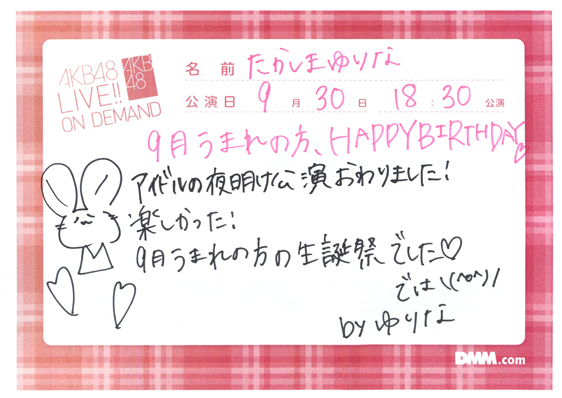 AKB48
LIVE!!
ON DEMAND
AKB
48
名前 たかしまゆりな
公演日 9月30日 18:30公演
9月うまれの方、HAPPYBIRTHDAY♡
アイドルの夜明け公演おわりました!
楽しかった!
9月うまれの方の生誕祭でした♡
では\(^o^)/
by ゆりな
DMM.com